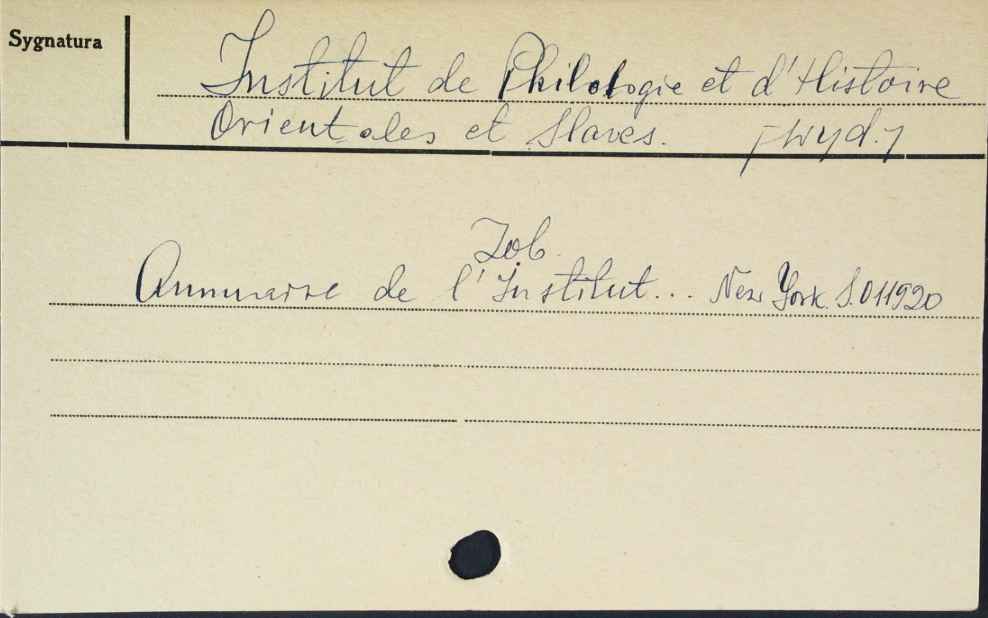 Sygnatura
Institut de Philologie et d'Histoire
Orientales et Slaves. [wyd.]
Zob.
Annuaire de l'Institut... New York. S.011920